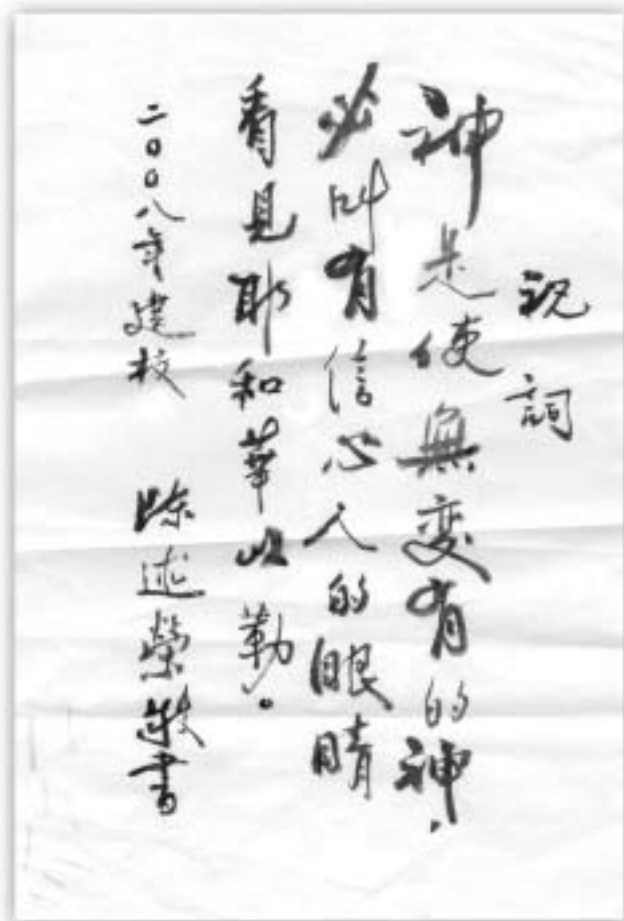 祝詞
神是使無变有的神，
必叫有信心人的眼睛
看見耶和華以勒。
二〇〇八年建校 陈述榮敬書